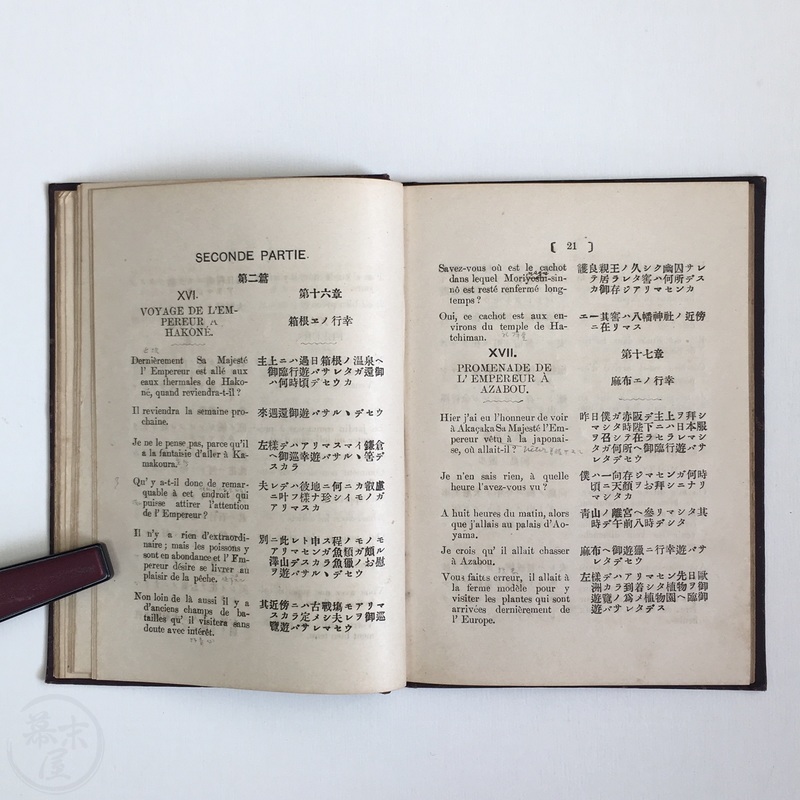 SECONDE PARTIE.
第二篇
XVI.
VOYAGE DE L'EM-
PEREUR A
HAKONÉ.
第十六章
箱根エノ行幸
Dernièrement Sa Majesté
l' Empereur est allé aux
eaux thermales de Hako-
né, quand reviendra-t-il?
主上ニハ過日箱根ノ温泉ヘ
御臨行遊バサレタガ還御
ハ何時頃デセウカ
Il reviendra la semaine pro-
chaine.
來週還御遊バサルヽデセウ
Je ne le pense pas, parce qu'il
a la fantaisie d'aller à Ka-
makoura.
左樣デハアリマスマイ鎌倉
ヘ御巡幸遊バサルヽ筈デ
スカラ
Qu'y a-t-il donc de remar-
quable à cet endroit qui
puisse attirer l'attention
de l' Empereur?
夫レデハ彼地ニ何ニカ叡慮
ニ叶フ樣ナ珍シイモノガ
アリマスカ
Il n'y a rien d'extraordi-
naire; mais les poissons y
sont en abondance et l' Em-
pereur désire se livrer au
plaisir de la pêche.
別ニ此レト申ス程ノモノモ
アリマセンガ魚類ガ頗ル
澤山デスカラ魚獵ノお慰
ヲ遊バサレルデセウ
Non loin de là aussi il y a
d'anciens champs de ba-
tailles qu' il visitera sans
doute avec intérêt.
其近傍ニハ古戰塲モアリマ
スカラ定メシ夫レヲ御巡
覽遊バサレマセウ
( 21 )
Savez-vous où est le cachot
dans lequel Moriyoshi-sin-
nô est resté renfermé long-
temps?
護良親王ノ久シク幽囚サレ
テ居ラレタ窖ハ何所デス
カ御存ジアリマセンカ
Oui, ce cachot est aux en-
virons du temple de Ha-
tchiman.
エー其窖ハ八幡神社ノ近傍
ニ在リマス
XVII.
PROMENADE DE
L' EMPEREUR À
AZABOU.
第十七章
麻布エノ行幸
Hier j'ai eu l'honneur de voir
à Akaçaka Sa Majesté l'Em-
pereur vêtu à la japonai-
se, où allait-il?
昨日僕ガ赤阪デ主上ヲ拜シ
マシタ時陛下ニハ日本服
ヲ召シテ在ラセラレマシ
タガ何所ヘ御臨行遊バサ
レタデセウ
Je n'en sais rien, à quelle
heure l'avez-vous vu?
僕ハ一向存ジマセンガ何時
頃ニ天顔ヲお拜シニナリ
マシタカ
A huit heures du matin, alors
que j'allais au palais d'Ao-
yama.
靑山ノ離宮ヘ參リマシタ其
時デ午前八時デシタ
Je crois qu' il allait chasser
à Azabou.
麻布ヘ御遊獵ニ行幸遊バサ
レタデセウ
Vous faites erreur, il allait à
la ferme modèle pour y
visiter les plantes qui sont
arrivées dernièrement de
l' Europe.
左樣デハアリマセン先日歐
洲カラ到着シタ植物ヲ御
遊覽ノ爲メ植物園ヘ臨御
遊バサレタデス
幕末屋